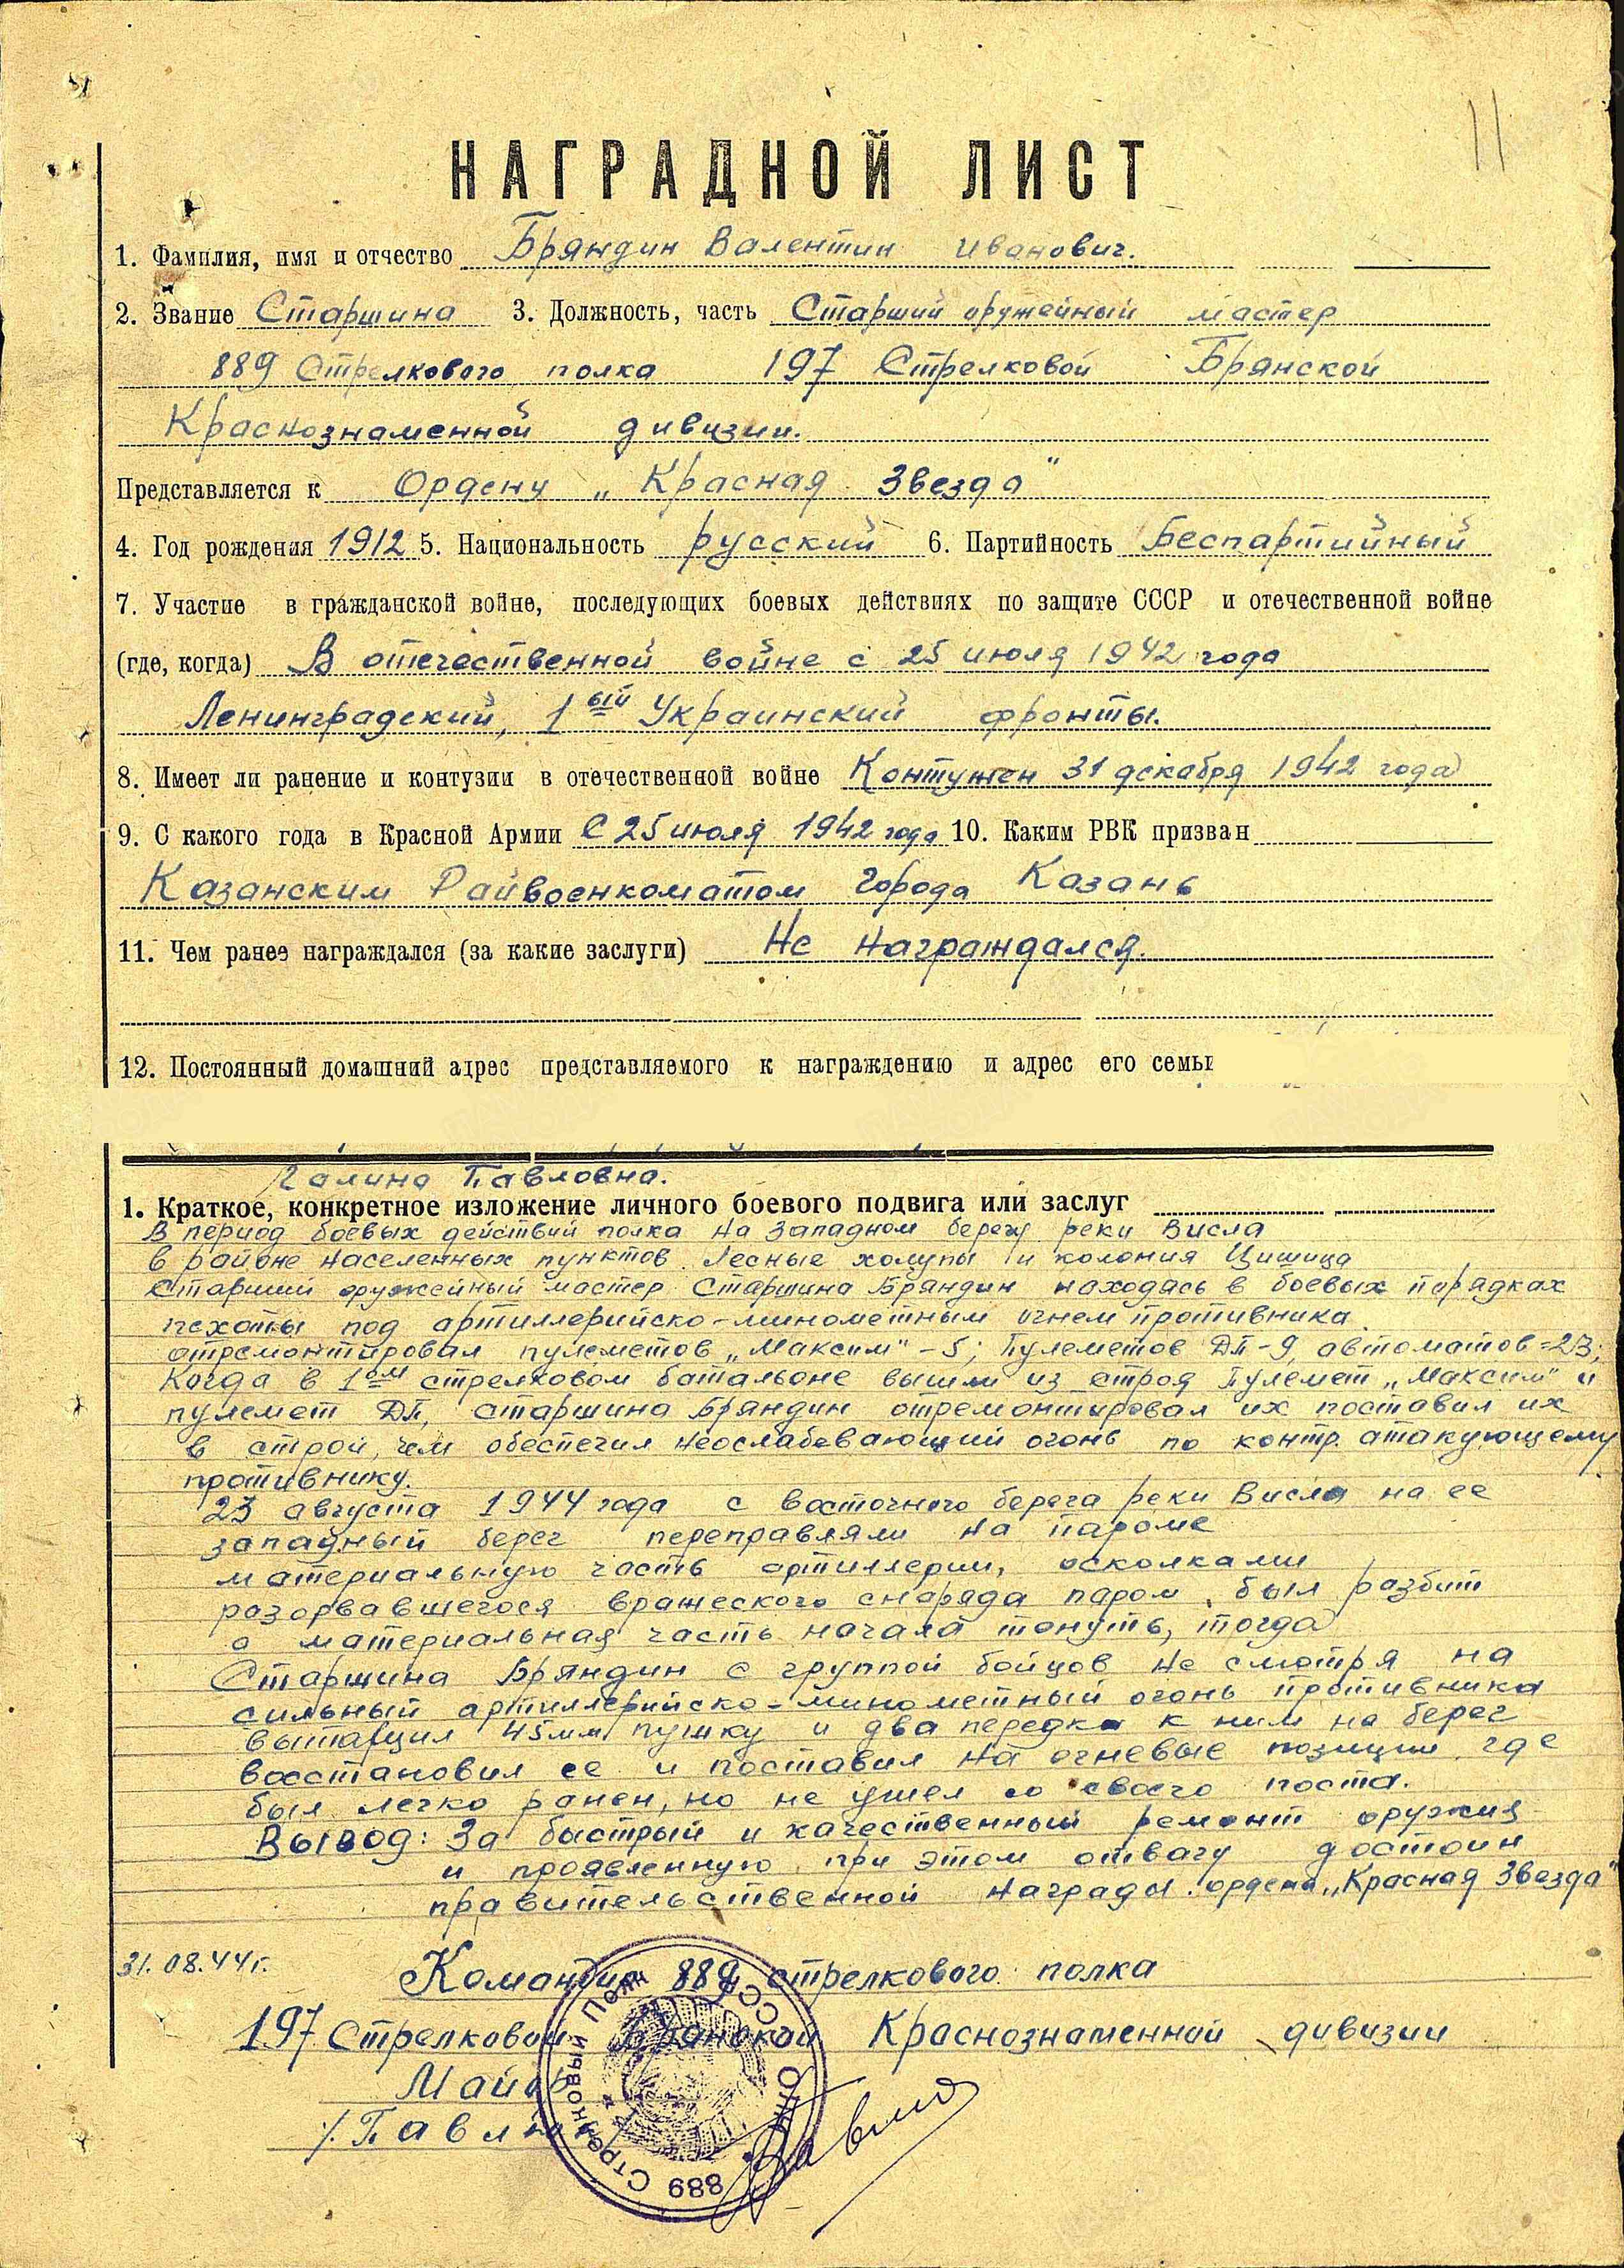 11
НАГРАДНОЙ ЛИСТ
1. Фамилия, имя и отчество Бряндин Валентин Иванович.
2. Звание Старшина 3. Должность, часть Старший оружейный мастер
889 Стрелкового полка 197 Стрелковой Брянской
Краснознаменной дивизии.
Представляется к Ордену „Красная Звезда"
4. Год рождения 1912 5. Национальность русский 6. Партийность Беспартийный
7. Участие в гражданской войне, последующих боевых действиях по защите СССР и отечественной войне
(где, когда) В отечественной войне с 25 июля 1942 года
Ленинградский, 1ый Украинский фронты.
8. Имеет ли ранение и контузии в отечественной войне Контужен 31 декабря 1942 года
9. С какого года в Красной Армии С 25 июля 1942 года 10. Каким РВК призван
Казанским Райвоенкоматом города Казань
11. Чем ранее награждался (за какие заслуги) Не награждался.
12. Постоянный домашний адрес представляемого к награждению и адрес его семьи
Галина Павловна.
1. Краткое, конкретное изложение личного боевого подвига или заслуг
В период боевых действий полка на западном берегу реки Висла
в районе населенных пунктов Лесные халупы и колония Цишица
Старший оружейный мастер Старшина Бряндин находясь в боевых порядках
пехоты под артиллерийско-минометным огнем противника
отремонтировал пулеметов „Максим" - 5; Пулеметов ДП-9, автоматов=23;
Когда в 1ом стрелковом батальоне вышли из строя Пулемет „Максим" и
пулемет ДП, старшина Бряндин отремонтировал их поставил их
в строй, чем обеспечил неослабевающий огонь по контр. атакующему
противнику.
23 августа 1944 года с восточного берега реки Висла на ее
западный берег переправляли на пароме
материальную часть артиллерии, осколками
разорвавшегося вражеского снаряда паром был разбит
а материальная часть начала тонуть, тогда
Старшина Бряндин с группой бойцов не смотря на
сильный артиллерийско-минометный огонь противника
вытащил 45мм пушку и два передка к ним на берег
восстановил ее и поставил на огневые позиции где
был легко ранен, но не ушел со своего поста.
Вывод: За быстрый и качественный ремонт оружия
и проявленную при этом отвагу достоин
правительственной награды ордена „Красная Звезда"
31.08.44г.
Командир 889 стрелкового полка
197 Стрелковой Брянской Краснознаменной дивизии
Майор
889 Стрелковый Полк СССР